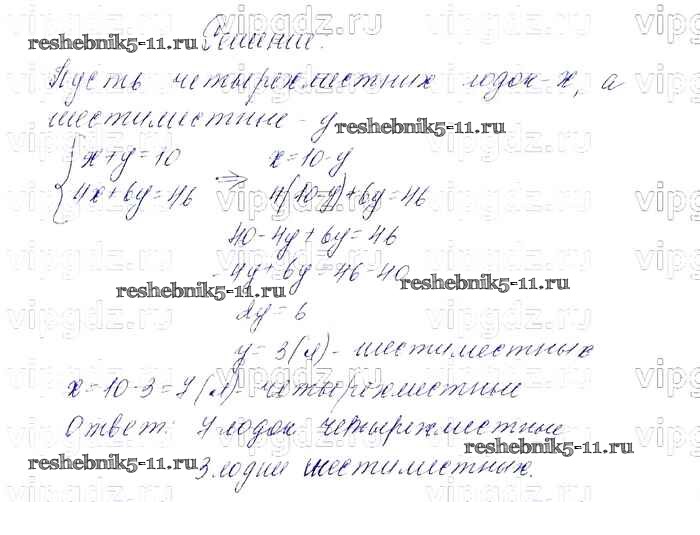 Решение.
Пусть четырехместных лодок - x, а
шестиместные - y
{ x+y=10 x=10-y
4x+6y=46 => 4(10-y)+6y=46
40-4y+6y=46
-4y+6y=46=40
2y=6
y=3(л)- шестиместных
x=10-3=7(л)- четырехместные
Ответ: 7 лодок четырехместные
3 лодки шестиместных.
reshebnik5-11.ru
reshebnik5-11.ru
reshebnik5-11.ru
reshebnik5-11.ru
reshebnik5-11.ru
reshebnik5-11.ru
vipgdz.ru